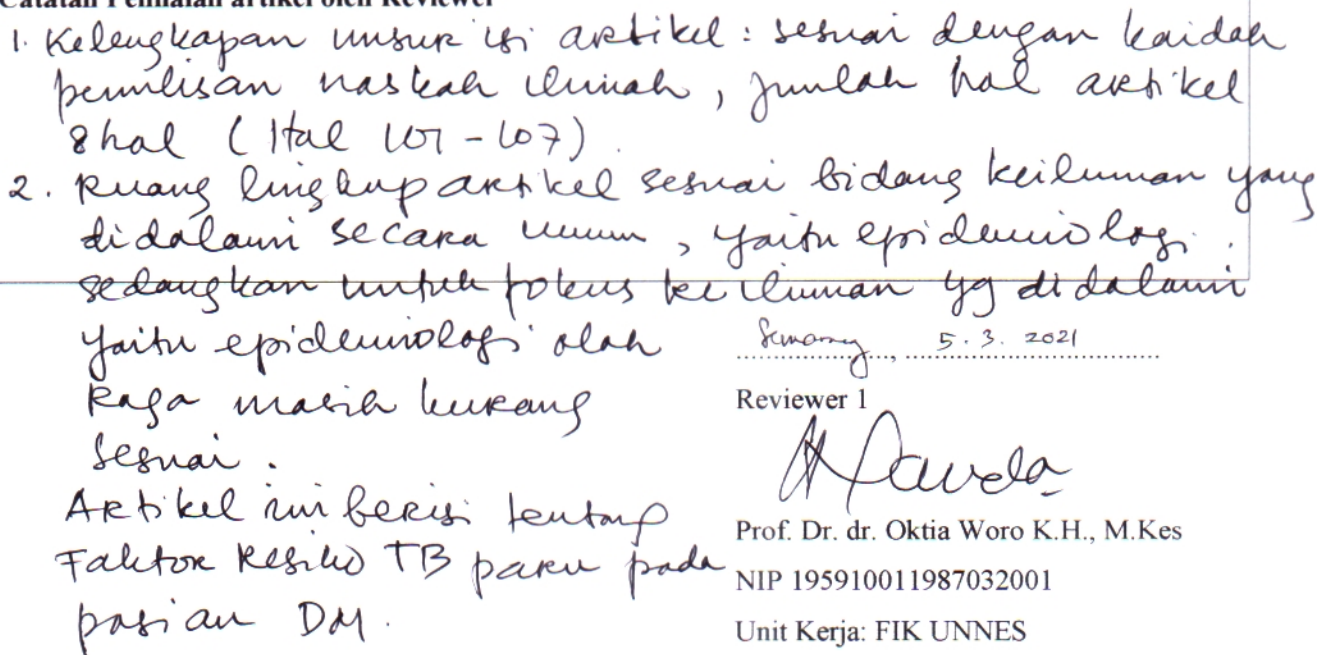 Catatan Penilaian artikel oleh Reviewer
1. Kelengkapan unsur isi artikel : sesuai dengan kaidah
penulisan naskah ilmiah, jumlah hal artikel
8 hal ( Hal 101 - 107)
2. Ruang lingkup artikel sesuai bidang keilmuan yang
didalami secara umum, yaitu epidemiologi.
sedangkan untuk fokus keilmuan yg didalami
yaitu epidemiologi olah
Raga masih kurang
sesuai.
Artikel ini berisi tentang
Faktor Resiko TB paru pada
pasien DM.
Semarang, 5. 3. 2021
Reviewer 1
Prof. Dr. dr. Oktia Woro K.H., M.Kes
NIP 195910011987032001
Unit Kerja: FIK UNNES